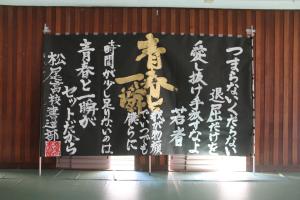 つまらない、くだらない
退屈だけを
愛し抜け手放すなよ
若者
青春と一瞬
いつでも僕らに
時間が少し足りないのは
青春と一瞬が
セットだから
松尾高校書道部